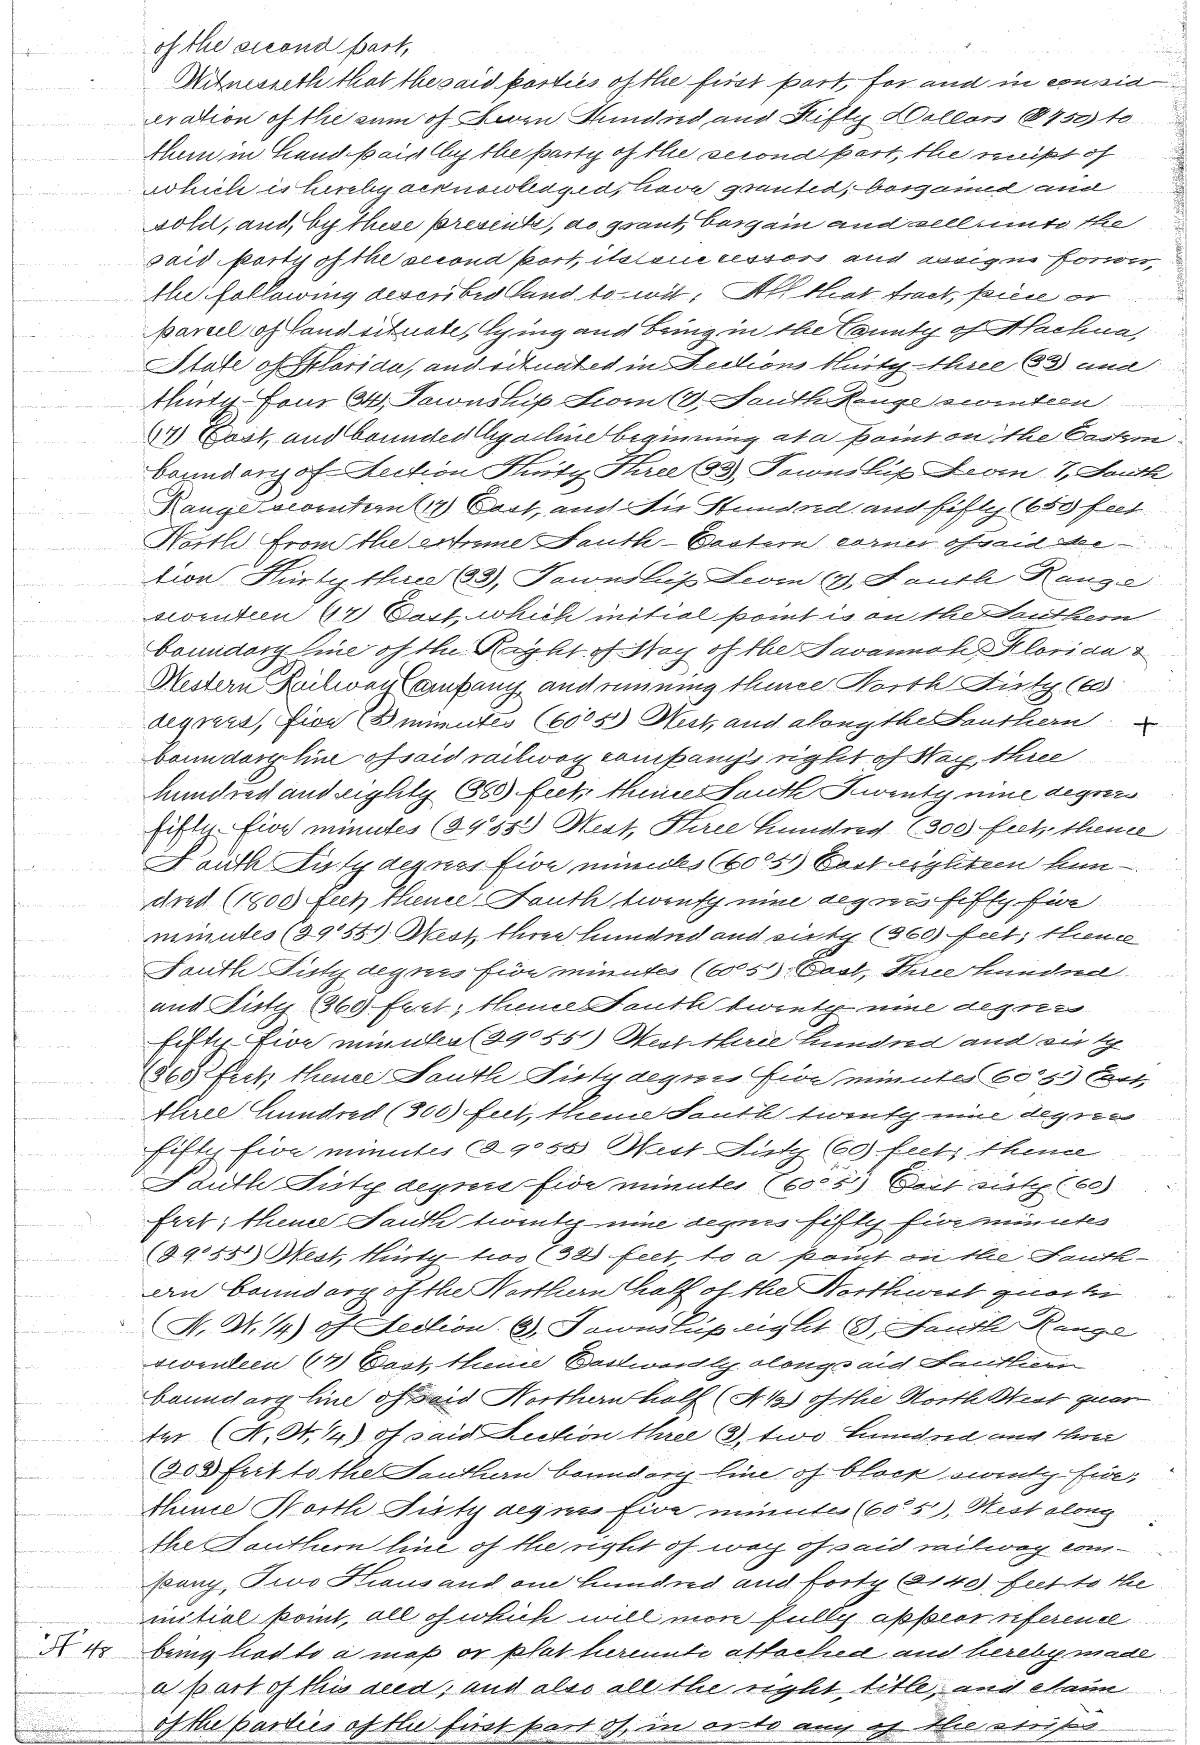 of the second part,
Witnesseth that the said parties of the first part, for and in consid
eration of the sum of Seven Hundred and Fifty Dollars ($750) to
them in hand paid by the party of the second part, the receipt of
which is hereby acknowledged, have granted, bargained and
sold, and, by these presents, do grant, bargain and sell unto the
said party of the second part, its successors and assigns forever,
the following described land to-wit; All that tract, piece or
parcel of land situate, lying and being in the County of Alachua,
State of Florida, and situated in Sections thirty-three (33) and
thirty-four (34), Township Seven (7), South Range seventeen
(17) East, and bounded by a line beginning at a point on the Eastern
boundary of Section Thirty Three (33), Township Seven 7, South
Range seventeen (17) East, and Six Hundred and fifty (650) feet
North from the extreme South-Eastern corner of said Sec-
tion Thirty three (33), Township Seven (7), South Range
seventeen (17) East, which initial point is on the Southern
boundary line of the Right of Way of the Savannah, Florida &
Western Railway Company, and running thence North Sixty (60)
degrees, five (5) minutes (60°5') West, and along the Southern +
boundary line of said railway company's right of Way, three
hundred and eighty feet; thence South Twenty nine degrees
fifty-five minutes (29°55') West, Three hundred (300) feet; thence
South Sixty degrees five minutes (60°5') East eighteen hun-
dred (1800) feet, thence South twenty nine degrees fifty five
minutes (29°55') West, three hundred and sixty (360) feet; thence
South Sixty degrees five minutes (60°5') East, Three hundred
and Sixty (360) feet; thence South twenty nine degrees
fifty-five minutes (29°55') West three hundred and sixty
(360) feet; thence South Sixty degrees five minutes (60°5') East,
three hundred (300) feet, thence South twenty nine degrees
fifty five minutes (29°55') West Sixty (60) feet; thence
South Sixty degrees five minutes (60°5') East sixty (60)
feet; thence South twenty nine degrees fifty five minutes
(29°55') West, thirty-two (32) feet, to a point on the South-
ern boundary of the Northern half of the Northwest quarter
(N. W. 1/4) of Section (3), Township eight (8), South Range
seventeen (17) East, thence Eastwardly along said Southern
boundary line of said Northern half (N 1/2) of the North West quar
ter (N. W. 1/4) of said Section three (3), two hundred and three
(203) feet to the Southern boundary line of block seventy-five;
thence North Sixty degrees five minutes (60°5'), West along
the Southern line of the right of way of said railway com-
pany, Two Thousand one hundred and forty (2140) feet to the
initial point, all of which will more fully appear reference
"A" 48 being had to a map or plat hereunto attached and hereby made
a part of this deed; and also all the right, title, and claim
of the parties of the first part of, in or to any of the strips